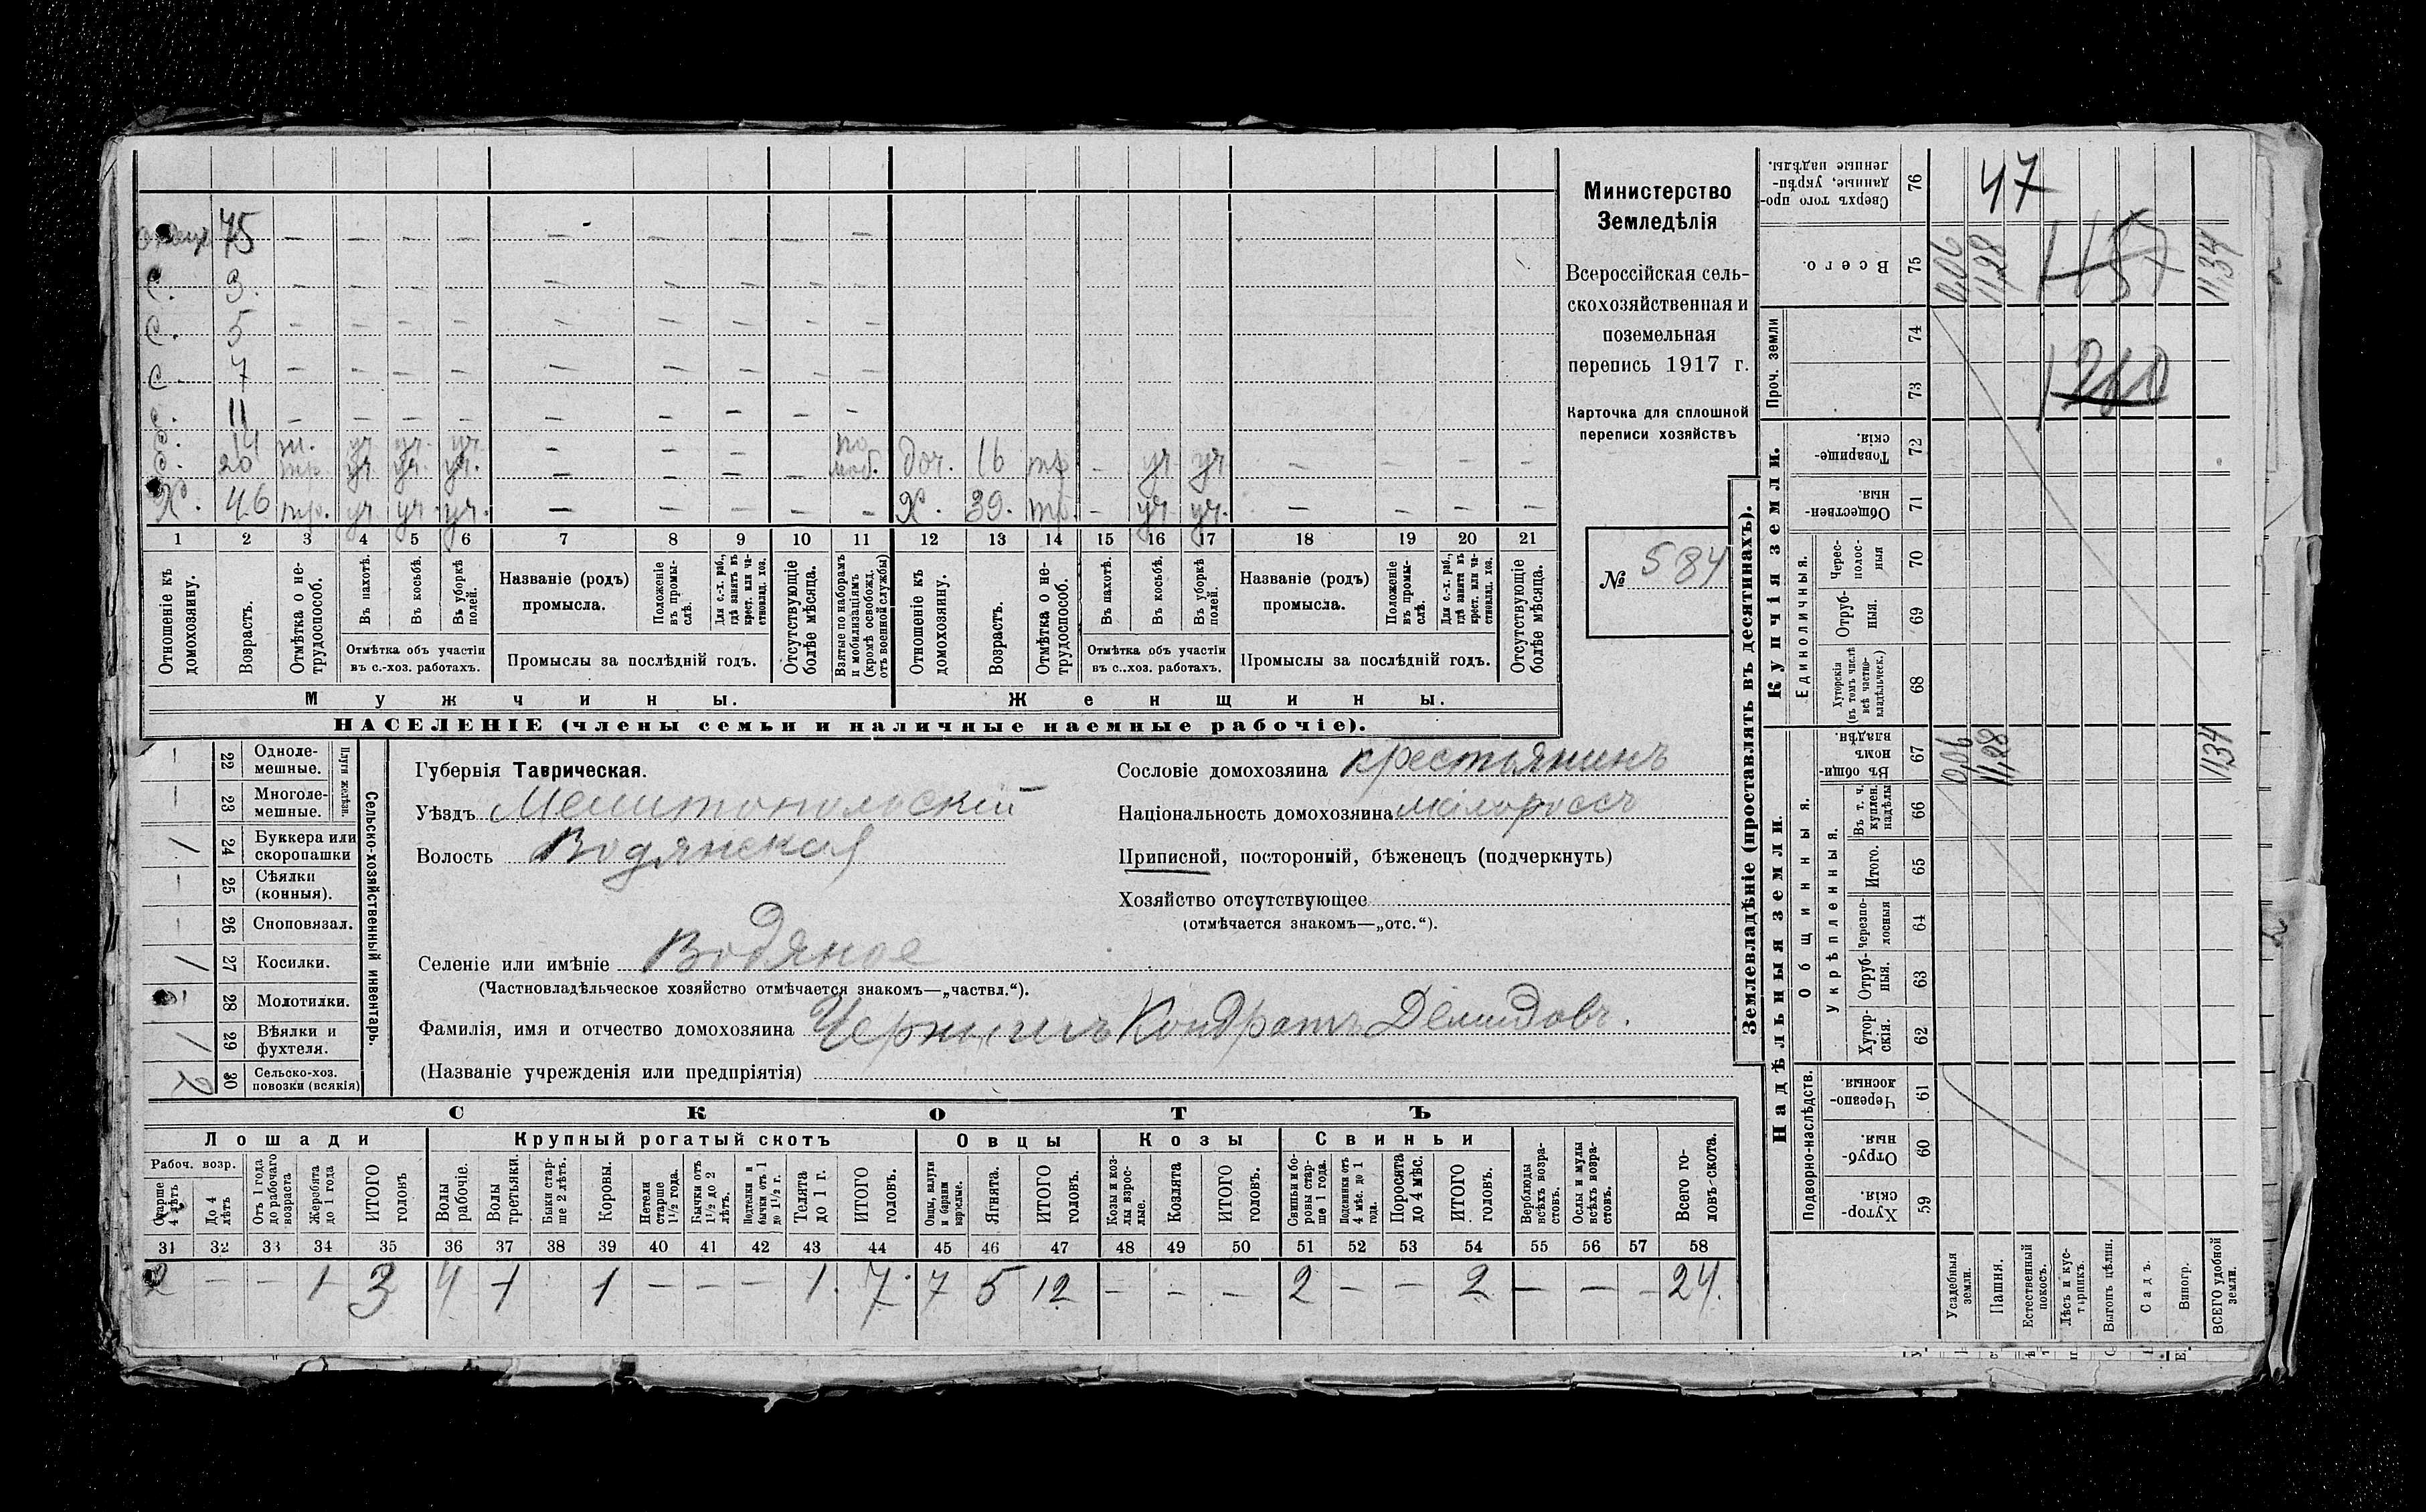 отецъ 75 — — — — — — — — —
С. 3. — — — — — — — — —
С. 5 — — — — — — — — —
С. 7 — — — — — — — — —
С. 11 — — — — — — — — —
С. 14 т. уч. уч. уч. — — — по
С. 20 тр. уч. уч. уч. — — — — моб. доч. 16 тр — уч уч — — — —
Х. 46 тр. уч. уч. уч. — — — — — Х. 39. тр. — уч уч. — — — —
1 2 3 4 5 6 7 8 9 10 11 12 13 14 15 16 17 18 19 20 21
Отношеніе къ домохозяину.
Возрастъ.
Отмѣтка о не-трудоспособ.
Въ пахотѣ.
Въ косьбѣ.
Въ уборкѣ полей.
Отмѣтка объ участіи въ с.-хоз. работахъ.
Названіе (родъ) промысла.
Положеніе въ промы-слѣ.
Для с.-х. раб., гдѣ занятъ въ крест. или ча-стновлад. хоз.
Промыслы за послѣдній годъ.
Отсутствующіе болѣе мѣсяца.
Взятые по наборамъ и мобилизаціямъ (кромѣ освобожд. отъ военной службы)
Отношеніе къ домохозяину.
Возрастъ.
Отмѣтка о не-трудоспособ.
Въ пахотѣ.
Въ косьбѣ.
Въ уборкѣ полей.
Отмѣтка объ участіи въ с.-хоз. работахъ.
Названіе (родъ) промысла.
Положеніе въ промы-слѣ.
Для с.-х. раб., гдѣ занята въ крест. или ча-стновлад. хоз.
Промыслы за послѣдній годъ.
Отсутствующіе болѣе мѣсяца.
Мужчины. Женщины.
НАСЕЛЕНІЕ (члены семьи и наличные наемные рабочіе).
Министерство
Земледѣлія
Всероссійская сель-
скохозяйственная и
поземельная
перепись 1917 г.
Карточка для сплошной
переписи хозяйствъ
№ 584
Сельско-хозяйственный инвентарь.
Плуги желѣзн.
— 22 Одноле-мешные.
— 23 Многоле-мешные.
1 24 Буккера или скоропашки
— 25 Сѣялки (конныя).
— 26 Сноповязал.
1 27 Косилки.
28 Молотилки.
1 29 Вѣялки и фухтеля.
2 30 Сельско-хоз. повозки (всякія)
Губернія Таврическая.
Уѣздъ Мелитопольскій
Волость Водянская
Селеніе или имѣніе Водяное
(Частновладѣльческое хозяйство отмѣчается знакомъ—„частвл.“).
Фамилія, имя и отчество домохозяина Чернышъ Кондратъ Демидовъ.
(Названіе учрежденія или предпріятія)
Сословіе домохозяина крестьянинъ
Національность домохозяина малороссъ
Приписной, посторонній, бѣженецъ (подчеркнуть)
Хозяйство отсутствующее
(отмѣчается знакомъ—„отс.“).
СКОТЪ
Лошади Крупный рогатый скотъ Овцы Козы Свиньи
Рабоч. возр.
Старше 4 лѣтъ
До 4 лѣтъ
Отъ 1 года до рабочаго возраста
Жеребята до 1 года
ИТОГО головъ
Волы рабочіе.
Волы третьяки.
Быки стар-ше 2 лѣтъ.
Коровы.
Нетели старше 1½ года.
Бычки отъ 1½ до 2 лѣтъ.
Подтелки и бычки отъ 1 до 1½ г.
Телята до 1 г.
ИТОГО головъ.
Овцы, валухи и бараны взрослые.
Ягнята.
ИТОГО головъ.
Козы и коз-лы взрос-лые.
Козлята
ИТОГО головъ.
Свиньи и бо-ровы стар-ше 1 года.
Подсвинки отъ 4 мѣс. до 1 года.
Поросята до 4 мѣс.
ИТОГО головъ.
Верблюды всѣхъ возра-стовъ.
Ослы и мулы всѣхъ возра-стовъ.
Всего го-ловъ скота.
31 32 33 34 35 36 37 38 39 40 41 42 43 44 45 46 47 48 49 50 51 52 53 54 55 56 57 58
2 — — 1 3 4 1 1 — — — 1. 7. 7 5 12 — — — 2 — — 2 — — — 24.
Землевладѣніе (проставлять въ десятинахъ).
Купчія земли.
Надѣльныя земли.
Сверхъ того про-данные, укрѣп-ленные надѣлы. 76
47
Всего. 75 0,06 11,28 157 11,34
Проч. земли 74
73
1260
Товарище-скія. 72
Обществен-ныя. 71
Единоличныя.
Черес-полос-ныя 70
Отруб-ныя. 69
Хуторскія (въ томъ числѣ всѣ частно-владѣльческ.) 68
Общинныя.
Въ общи-номъ владѣн. 67 0,06 11,28 11,34
Укрѣпленныя.
Въ т. ч. куплен. надѣлы 66
Итого. 65
Черезпо-лосныя 64
Отруб-ныя. 63
Хутор-скія. 62
Подворно-наслѣдств.
Черезпо-лосныя. 61
Отруб-ныя. 60
Хутор-скія. 59
Усадебныя земли.
Пашня.
Естественный покосъ.
Лѣсъ и кус-тарникъ.
Выгонъ цѣлин.
Садъ.
Виногр.
ВСЕГО удобной земли.